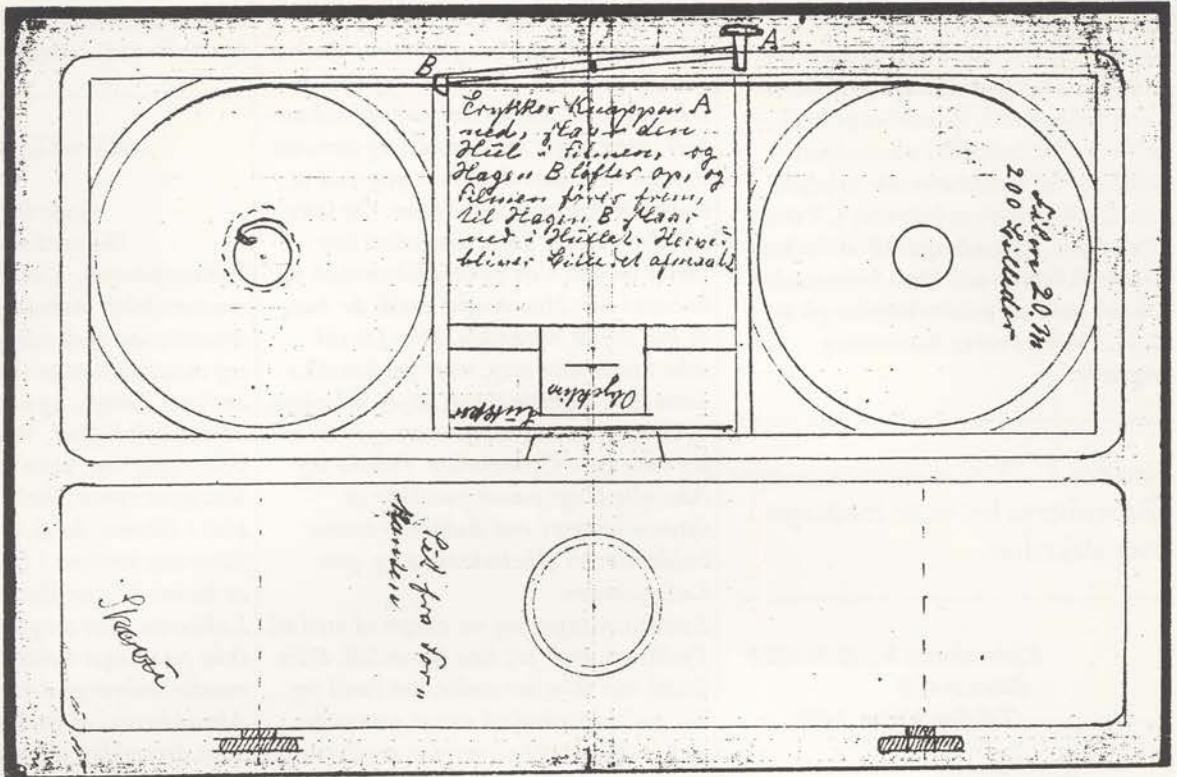 A
B
Trykker Knappen A
ned, slaar den
Hul i Filmen, og
Hagen B løfter op, og
Filmen føres frem,
til Hagen B slaar
ned i Hullet. Herved
bliver Billedet afmaalt
Film 20. M
200 Billeder
Objektiv
Lukker
Set fra For"
kanten